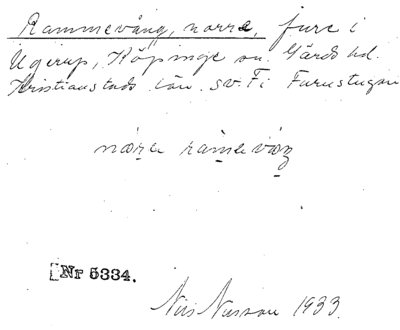 Rammevång, norre, jure i
Ugerup, Köpinge sn. Gärds hd.
Kristianstads län. sv. Fi Furustugan
næren
[Nr 5334.
Nils Nilsson 1933.